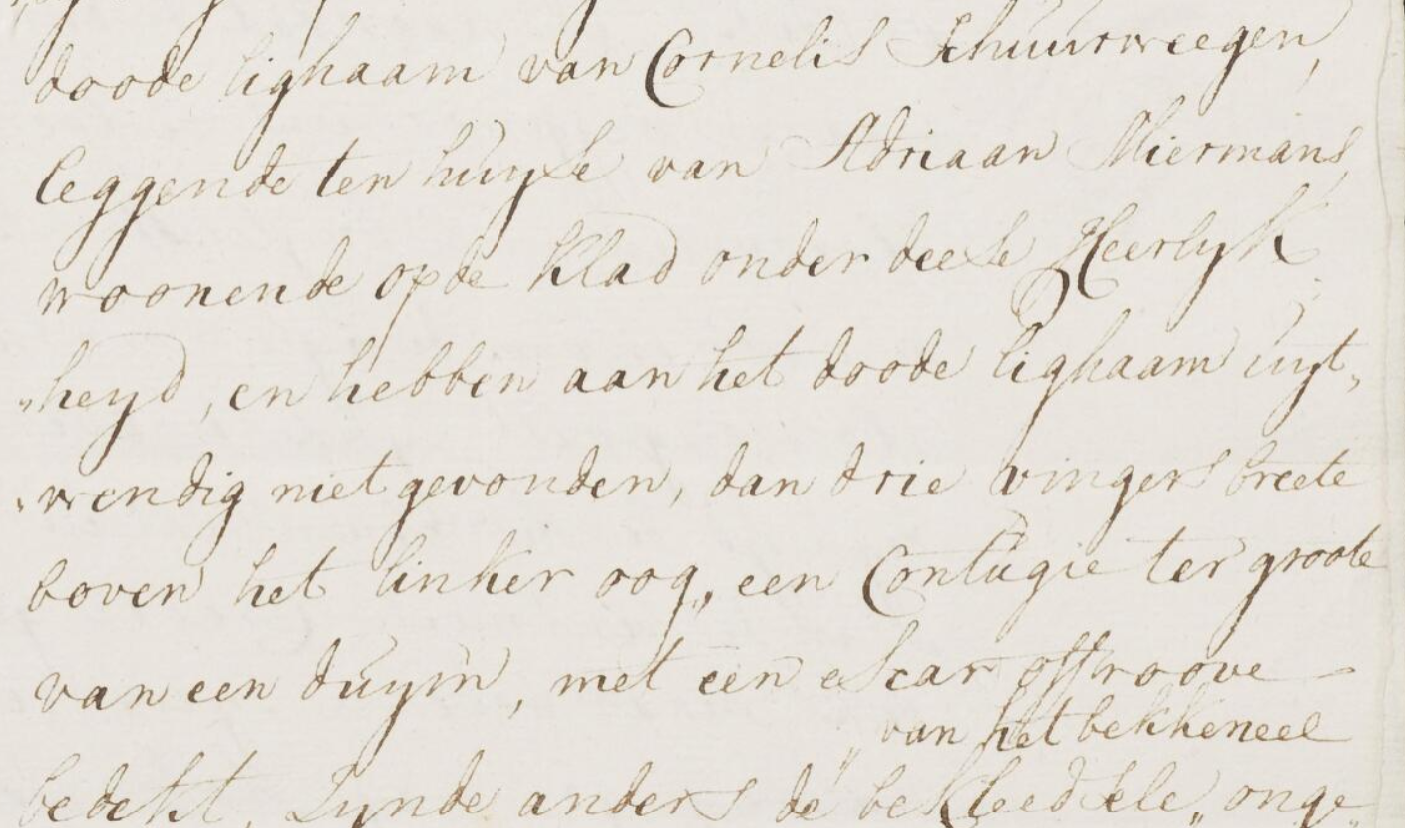 doode lighaam van Cornelis Schuurweegen,
leggende ten huyse van Adriaan Miermans,
woonende op de Klad onder deese Heerlyk
„heyd, en hebben aan het doode lighaam uyt„
„wendig niet gevonden, dan drie vingers breete
boven het linker oog„ een Contugie ter groote
van een duym, met een escar off roove
„van het bekkeneel
bedekt, Zynde anders de bekleedsele„ onge„